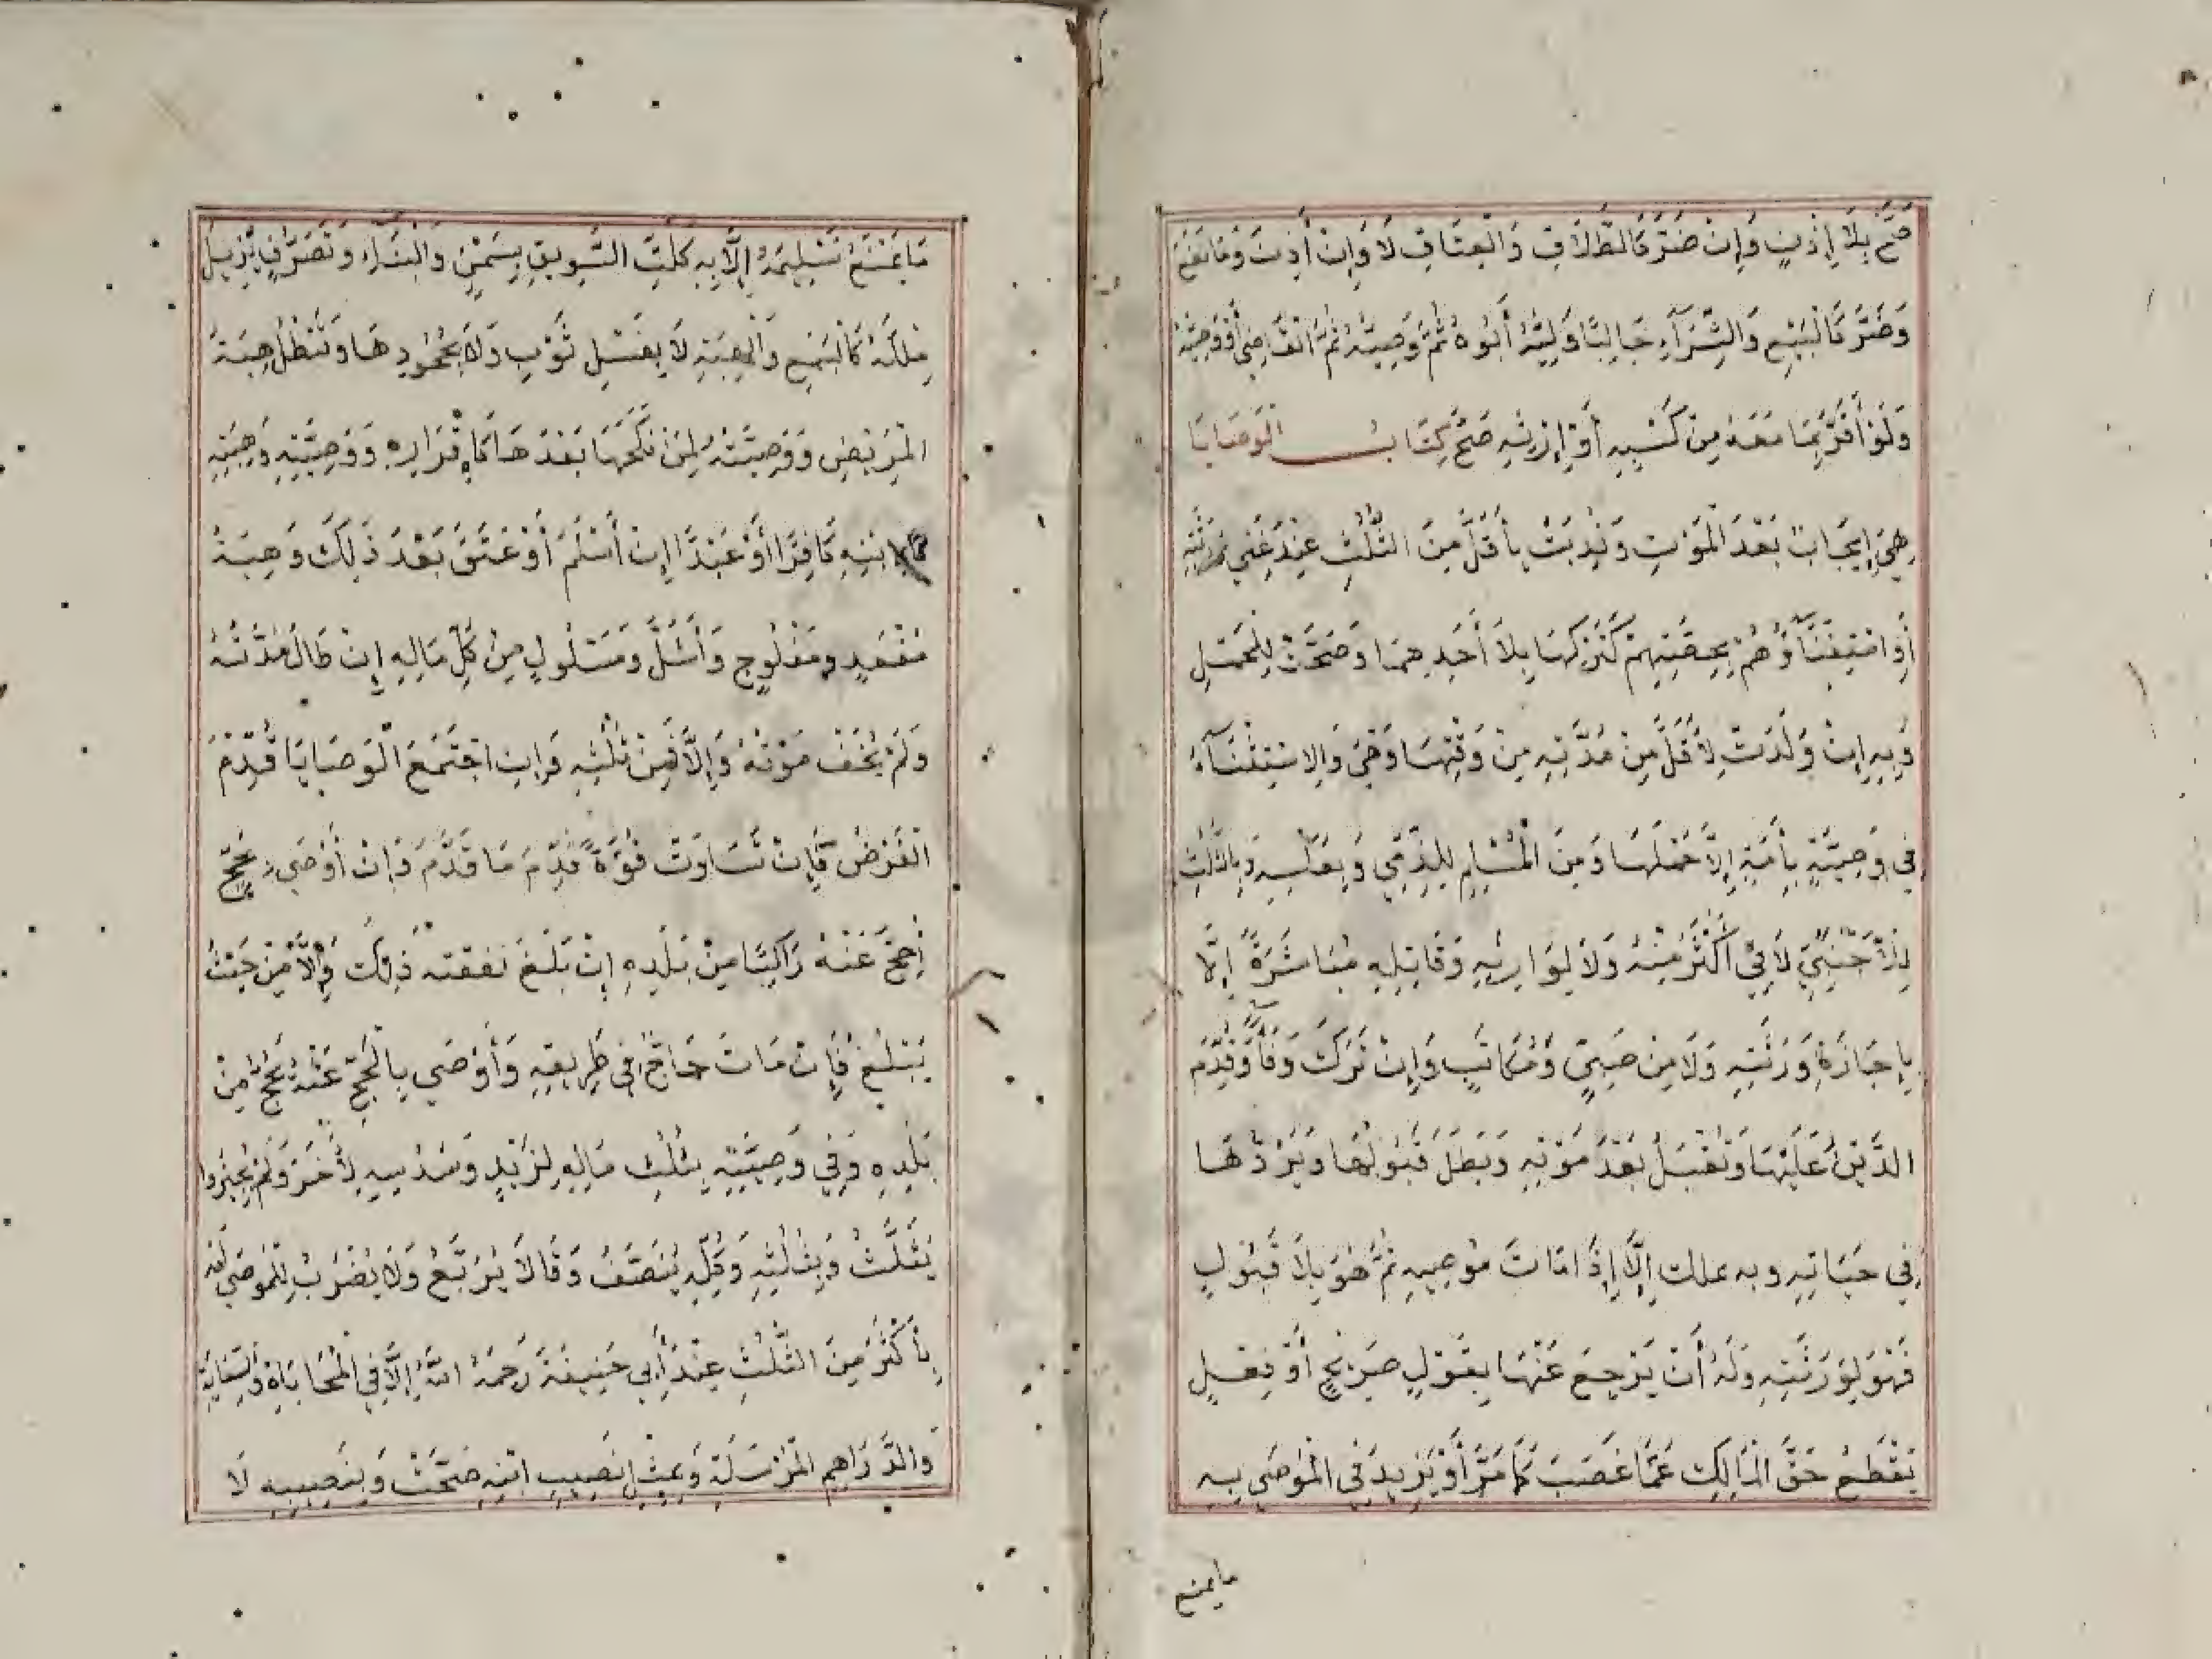 صَحَّ بِلَا إِذْنٍ وَإِنْ ضَرَّ كَالطَّلَاقِ وَالْعِتَاقِ لَا وَإِنْ أَذِنَ وَمَا نَفَعَ
وَضَرَّ كَالْبَيْعِ وَالشِّرَآءِ وَلِيُّهُ أَبُوهُ ثُمَّ وَصِيُّهُ ثُمَّ الْقَاضِي أَوْ وَصِيُّهُ
وَلَوْ أَقَرَّ بِمَا مَعَهُ مِنْ كَسْبِهِ أَوْ إِرْثِهِ صَحَّ كِتَابُ الْوَصَايَا
هِيَ إِيجَابٌ بَعْدَ الْمَوْتِ وَنُدِبَتْ بِأَقَلَّ مِنَ الثُّلُثِ عِنْدَ غِنَي وَرَثَتِهِ
أَوِ اسْتِغْنَآؤُهُمْ بِحِصَّتِهِمْ كَتَرْكِهَا بِلَا أَحَدِهِمَا وَصَحَّتْ لِلْحَمْلِ
وَبِهِ إِنْ وَلَدَتْ لِأَقَلَّ مِنْ مُدَّتِهِ مِنْ وَقْتِهَا وَهِيَ وَالِاسْتِثْنَآءُ
فِي وَصِيَّةٍ بِأَمَةٍ إِلَّا حَمْلَهَا وَمِنَ الْمُسْلِمِ لِلذِّمِّي وَبِعَكْسِهِ وَبِالثُّلُثِ
لِلْأَجْنَبِيِّ لَا فِي أَكْثَرَ مِنْهُ وَلَا لِوَارِثِهِ وَقَاتِلِهِ مُبَاشَرَةً إِلَّا
بِإِجَازَةِ وَرَثَتِهِ وَلَا مِنْ صَبِيٍّ وَمُكَاتَبٍ وَإِنْ تَرَكَ وَفَآءً وَقُدِّمَ
الدَّيْنُ عَلَيْهَا وَتُقْبَلُ بَعْدَ مَوْتِهِ وَبَطَلَ قَبُولُهَا وَرَدُّهَا
فِي حَيَاتِهِ وبه يملك إِلَّا إِذَا مَاتَ مُوصِيهِ ثُمَّ هُوَ بِلَا قَبُولٍ
فَهُوَ لِوَرَثَتِهِ وَلَهُ أَنْ يَرْجِعَ عَنْهَا بِقَوْلٍ صَرِيْحٍ أَوْ فِعْلٍ
يَقْطَعُ حَقَّ الْمَالِكِ عَمَّا غَصَبَ كَمَا مَرَّ أَوْ يَزِيدُ فِي الْمُوصَي بِهِ
مايمنع
مَا يَمْنَعُ تَسْلِيمَهُ إِلَّا بِهِ كَلَتِّ السَّوِيقِ بِسَمْنٍ وَالْبِنَآءِ وَتَصَرُّفٍ يُزِيلُ
مِلْكَهُ كَالْبَيْعِ وَالْهِبَةِ لَا بِغَسْلِ ثَوْبٍ وَلَا بِجُحُودِهَا وَتَبْطُلُ هِبَةُ
الْمَرِيْضِ وَوَصِيَّتُهُ لِمَنْ نَكَحَهَا بَعْدَهَا كَإِقْرَارِهِ وَوَصِيَّتِهِ وَهِبَتِهِ
لِابْنِهِ كَافِرًا أَوْ عَبْدًا إِنْ أَسْلَمَ أَوْ عَتَقَ بَعْدَ ذَلِكَ وَهِبَةُ
مُقْعَدٍ وَمَفْلُوجٍ وَأَشَلَّ وَمَسْلُولٍ مِنْ كُلِّ مَالِهِ إِنْ طَالَ مُدَّتُهُ
وَلَمْ يُخَفْ مَوْتُهُ وَإِلَّا فَمِنْ ثُلُثِهِ وَإِنِ اجْتَمَعَ الْوَصَايَا قُدِّمَ
الْفَرْضُ فَإِنْ تَسَاوَتْ قُوَّةً قُدِّمَ مَا قَدَّمَ وَإِنْ أَوْصَي بِحَجٍّ
أُحِجَّ عَنْهُ رَاكِبًا مِنْ بَلَدِهِ إِنْ بَلَغَ نفقته ذَلِكَ وَإِلَّا فَمِنْ حَيْثُ
يَبْلُغُ فَإِنْ مَاتَ حَاجٌّ فِي طَرِيقِهِ وَأَوْصَي بِالْحَجِّ عَنْهُ يُحَجُّ مِنْ
بَلَدِهِ وَفِي وَصِيَّتِهِ بِثُلُثِ مَالِهِ لِزَيْدٍ وَسُدُسِهِ لِأَخَرَ وَلَمْ يُجِيزُوا
يُثَلَّثُ وَبِثُلُثِهِ وَكُلِّهِ يُنَصَّفُ وَقَالَا يُرَبَّعُ وَلَا يُضْرَبُ لِلْمُوصَي لَهُ
بِأَكْثَرَ مِنَ الثُّلُثِ عِنْدَ أَبِي حَنِيفَةَ رَحِمَهُ اللهُ إِلَّا فِي الْمُحَابَاةِ وَالسِّعَايَةِ
وَالدَّرَاهِمِ الْمُرْسَلَةِ وَبِمِثْلِ نَصِيبِ ابْنِهِ صَحَّتْ وَبِنَصِيبِهِ لَا